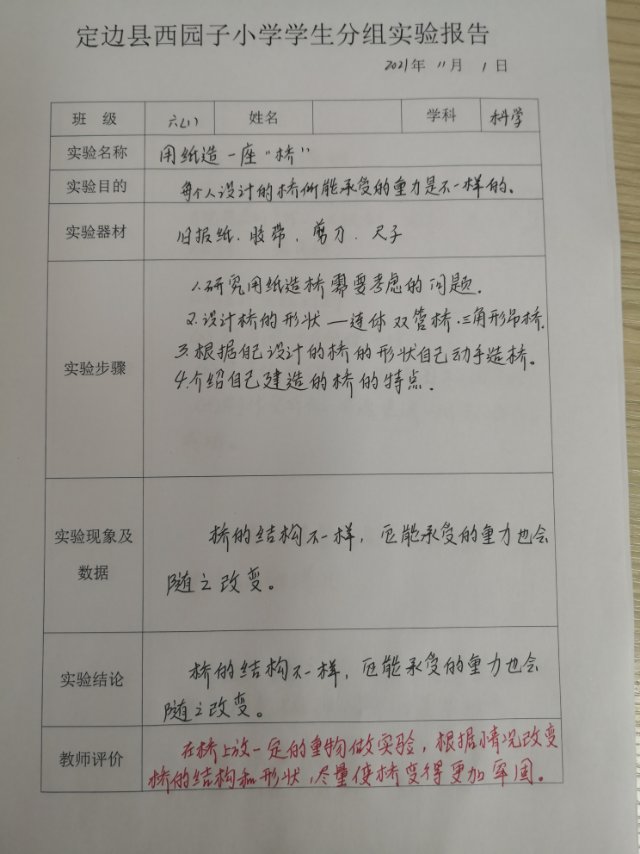 定边县西园子小学学生分组实验报告
2021年 11月 1日
班 级 六(1) 姓名 学科 科学
实验名称 用纸造一座"桥"
实验目的 每个人设计的桥所能承受的重力是不一样的。
实验器材 旧报纸、胶带、剪刀、尺子
实验步骤
1.研究用纸造桥需要考虑的问题.
2.设计桥的形状—连体双管桥.三角形吊桥.
3.根据自己设计的桥的形状自己动手造桥。
4.介绍自己建造的桥的特点.
实验现象及
数据
桥的结构不一样，所能承受的重力也会
随之改变。
实验结论
桥的结构不一样，所能承受的重力也会
随之改变。
教师评价
在桥上放一定的重物做实验，根据情况改变
桥的结构和形状，尽量使桥变得更加牢固。